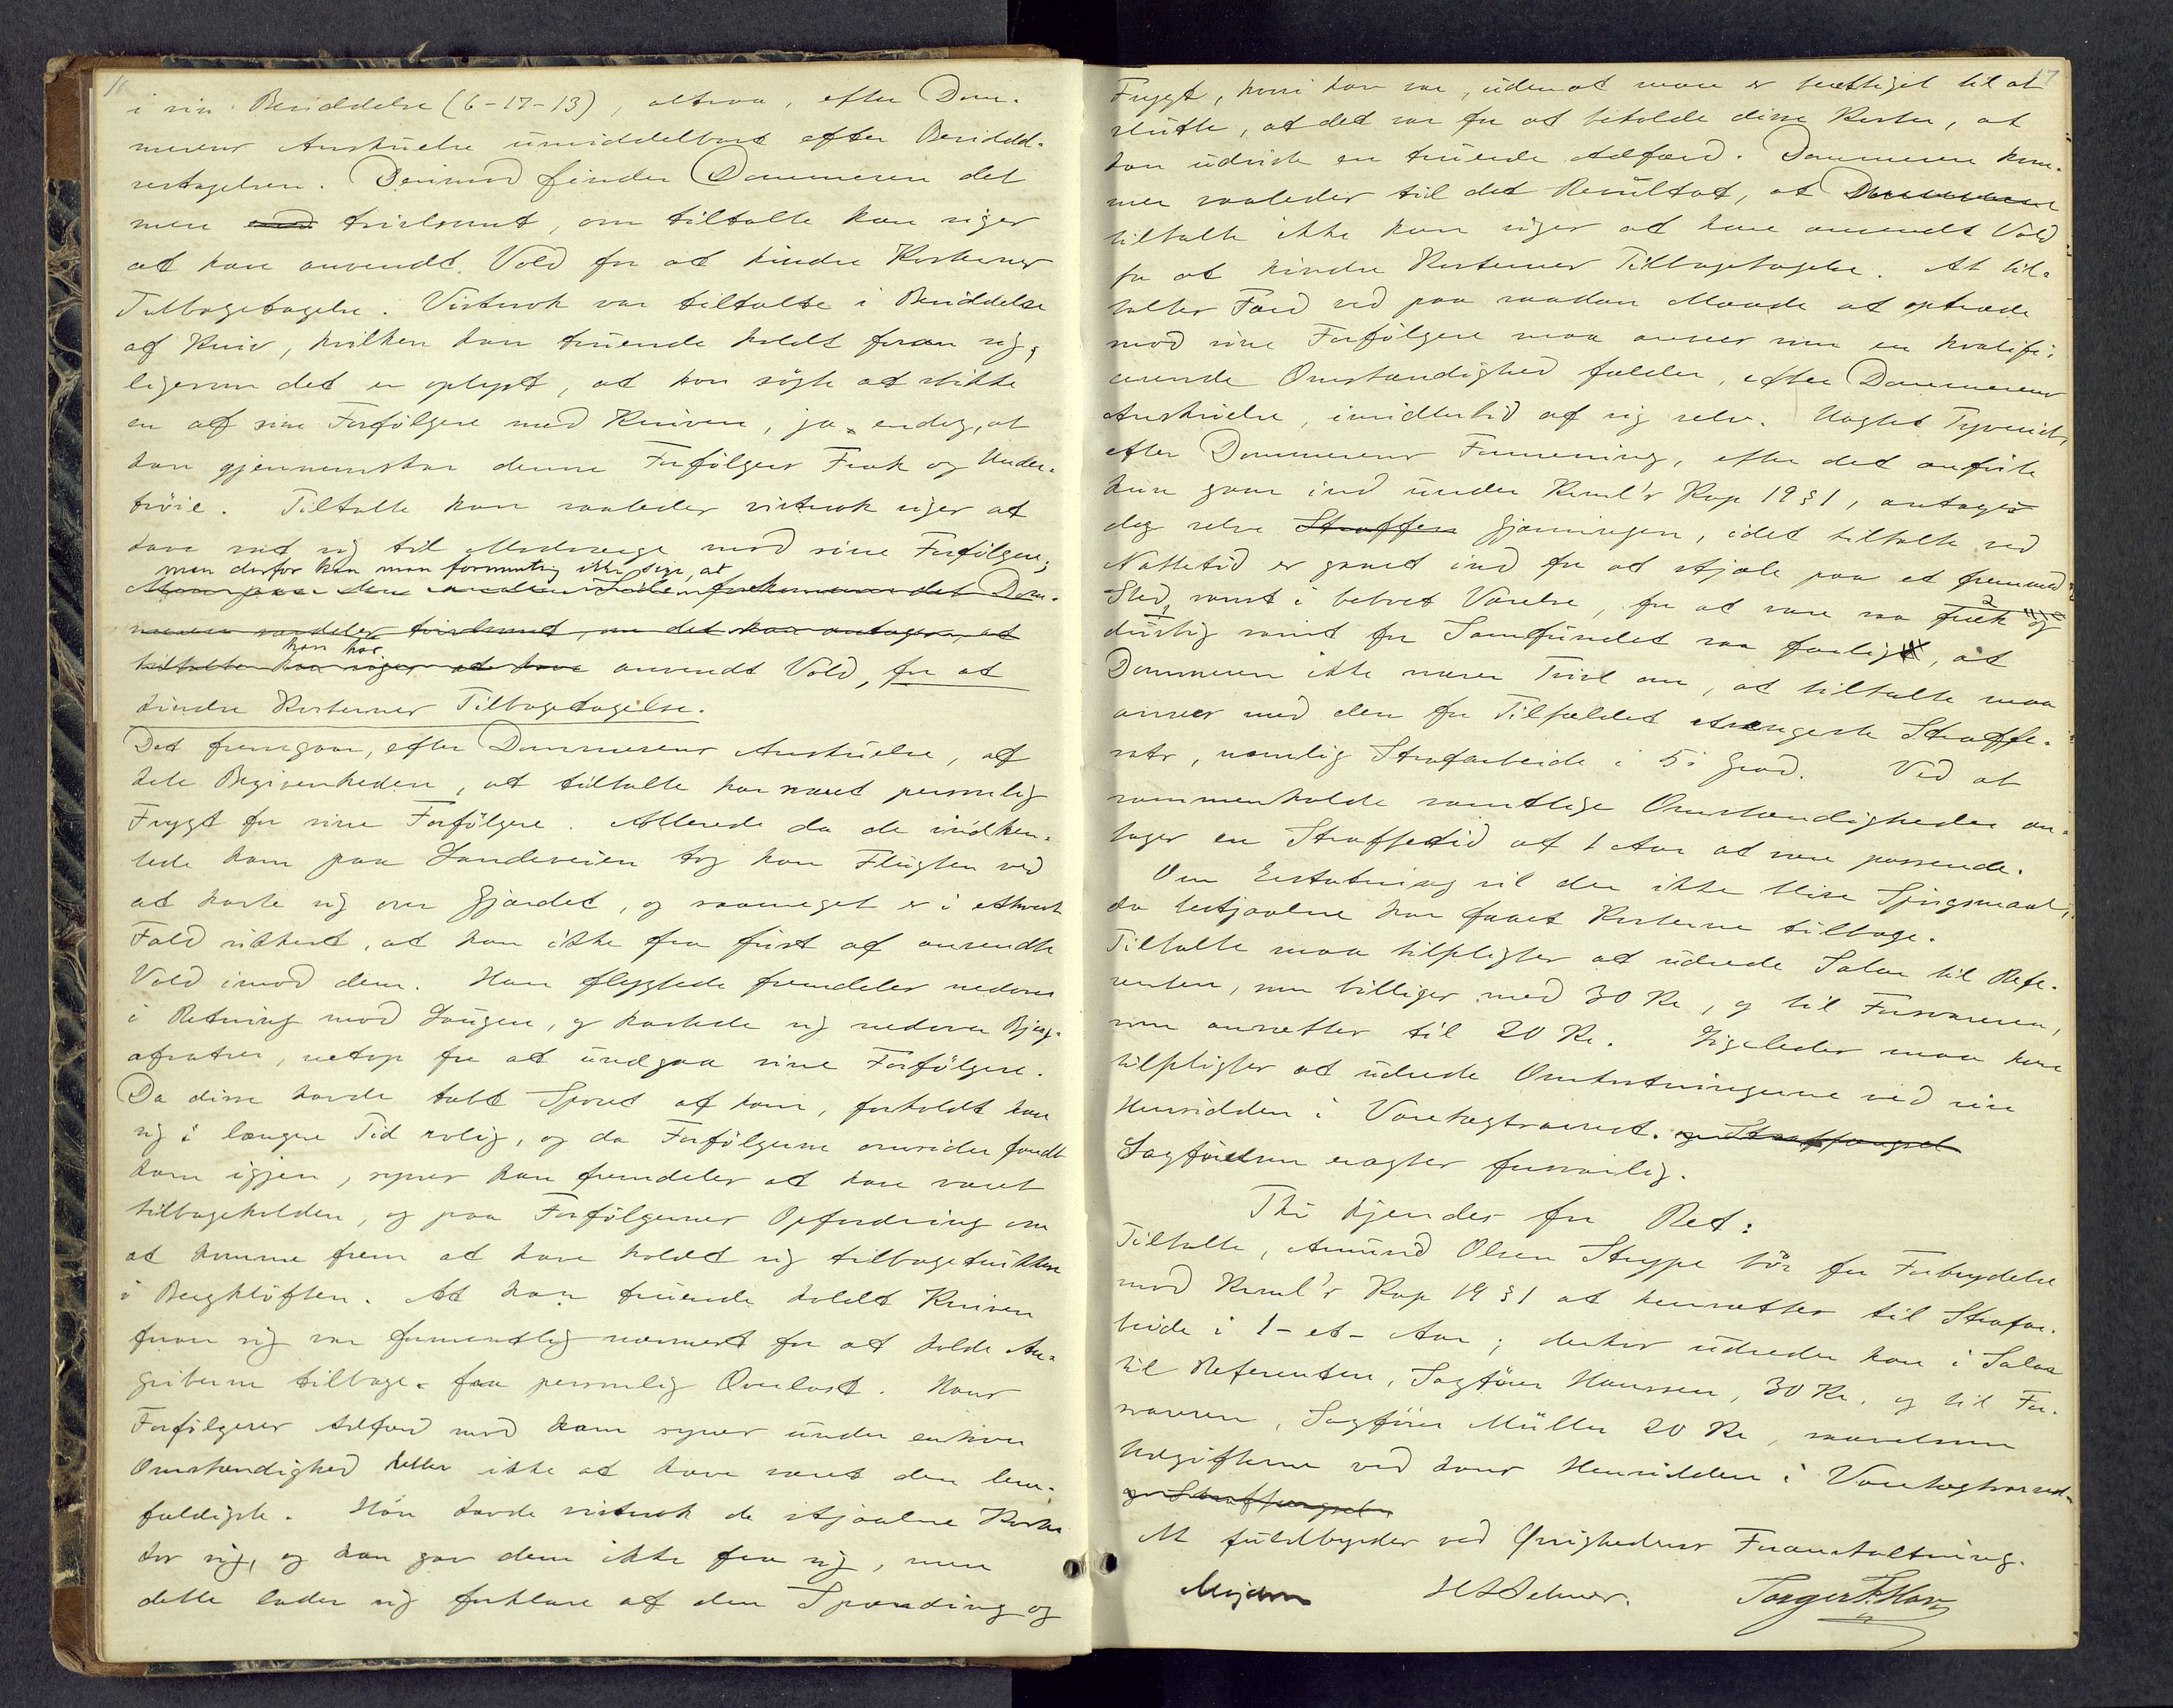 16
i sin Besiddelse (6-17-13), altsaa, efter Dom-
merens Anskuelse umiddelbart efter Besiddel-
sestagelsen. Derimod finder Dommeren det
mere tvivlsomt, om tiltalte kan siges
at have anvendt Vold for at hindre Kosternes
Tilbagetagelse. Vistnok var tiltalte i Besiddelse
af Kniv, hvilken han truende holdt foran sig,
ligesom det er oplyst, at han søgte at stikke
en af sine Forfølgere med Kniven, ja endog, at
han gjennemskar denne Forfølgers Frak og Under-
trøie. Tiltalte kan saaledes vistnok siges at
have sat sig til Modværge mod sine Forfølgere,
men derfor kan man formentlig ikke sige, at
Men paa den anden Side forekommer det Dom-
meren særdeles tvivlsomt, om det kan antages, at
han har
tiltalte kan siges at have anvendt Vold, for at
hindre Kosternes Tilbagetagelse.
Det fremgaar, efter Dommerens Anskuelse, af
hele Begivenheden, at tiltalte har næret personlig
Frygt for sine Forfølgere. Allerede da de indhen-
tede ham paa Landeveien tog han Flugten ved
at kaste sig over Gjærdet, og saameget er i ethvert
Fald sikkert, at han ikke fra først af anvendte
Vold imod dem. Han flygtede fremdeles nedover
i Retning mod Laugen, og kastede sig nedover Bjerg-
afsatser, netop for at undgaa sine Forfølgere.
Da disse havde tabt Sporet af ham, forholdt han
sig i længere Tid rolig, og da Forfølgerne omsider fandt
ham igjen, synes han fremdeles at have været
tilbageholden, og paa Forfølgernes Opfordring om
at komme frem at have holdt sig tilbagetrukken
i Bergkløften. At han truende holdt Kniven
foran sig var formentlig nærmest for at holde An-
griberne tilbage fra personlig Overlast. Hans
Forfølgeres Adfærd mod ham synes under enhver
Omstændighed heller ikke at have været den lem-
fældigste. Han havde vistnok de stjaalne Koster
hos sig, og han gav dem ikke fra sig, men
dette lader sig forklare af den Spænding og
17
Frygt, hvori han var, uden at man er berettiget til at
slutte, at det var for at beholde disse Koster, at
han udviste en truende Adfærd. Dommeren kom-
mer saaledes til det Resultat, at Dommeren
tiltalte ikke kan siges at have anvendt Vold
for at hindre Kosternes Tilbagetagelse. At til-
taltes Færd ved paa saadan Maade at optræde
mod sine Forfølgere maa ansees som en kvalifi-
cerende Omstændighed falder, efter Dommerens
Anskuelse, imidlertid af sig selv. Uagtet Tyveriet,
efter Dommerens Formening, efter det anførte
kun gaar ind under Kriml's Kap 19 § 1, antages
dog selve Straffen Gjerningen, idet tiltalte ved
Nattetid er gaaet ind for at stjæle paa et fremmed
Sted, samt i beboet Værelse, for at være saa fræk og
dristig samt for Samfundet saa farlig, at
Dommeren ikke nærer Tvivl om, at tiltalte maa
ansees med den for Tilfældet strengeste Straffe-
sats, nemlig Strafarbeide i 5i Grad. Ved at
sammenholde samtlige Omstændigheder an-
tages en Straffetid af 1 Aar at være passende.
Om Erstatning vil der ikke blive Spørgsmaal,
da bestjaalne har faaet Kosterne tilbage.
Tiltalte maa tilpligtes at udrede Salær til Refe-
renten, som billiges med 30 Kr, og til Forsvareren,
som ansættes til 20 Kr. Ligeledes maa han
tilpligtes at udrede Omkostningerne ved sin
Hensidden i Varetægtsarrest. og Straffængsel
Sagførelsen eragtes forsvarlig.
Thi kjendes for Ret:
Tiltalte, Amund Olsen Strype bør for Forbrydelse
mod Kriml's Kap 19 § 1 at hensættes til Strafar-
beide i 1 - et - Aar; derhos udreder han i Salær
til Referenten, Sagfører Hanssen, 30 Kr, og til For-
svareren, Sagfører Müller 20 Kr, saavelsom
Udgifterne ved hans Hensidden i Varetægtsarrest
og Straffængsel.
At fuldbyrdes ved Øvrighedens Foranstaltning.